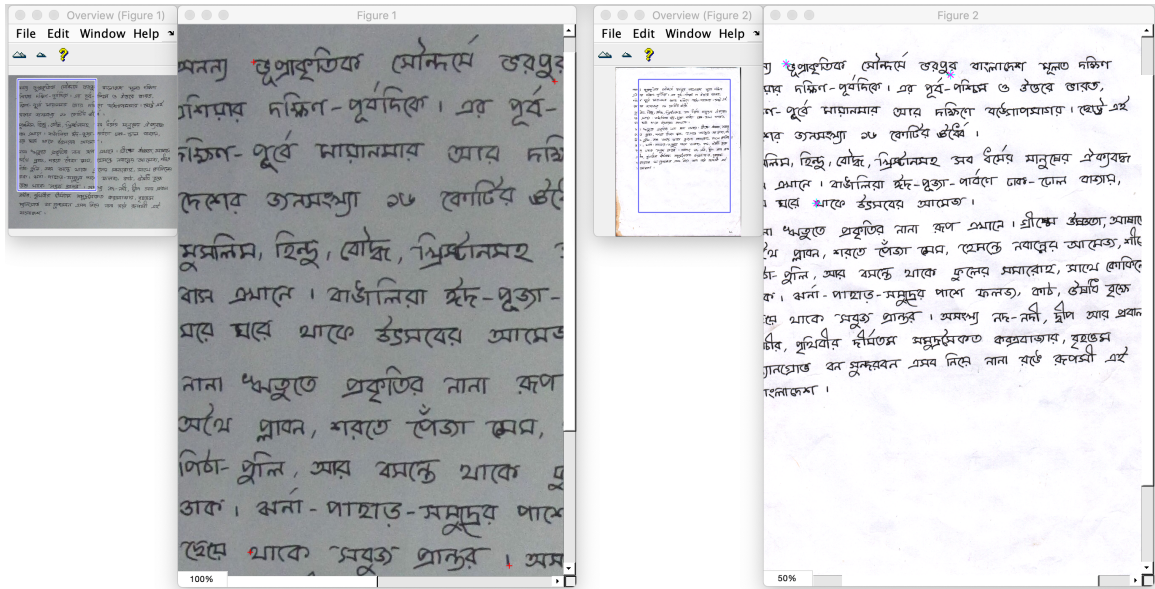 Overview (Figure 1)
File Edit Window Help
Figure 1
অনন্য ভূপ্রাকৃতিক সৌন্দর্যে ভরপুর
এশিয়ার দক্ষিণ-পূর্বদিকে। এর পূর্ব-
দক্ষিণ-পূর্বে মায়ানমার আর দক্ষি
দেশের জনসংখ্যা ১৬ কোটির ঊর্ধ্বে
মুসলিম, হিন্দু, বৌদ্ধ, খ্রিস্টানসহ
বাস এখানে। বাঙালিরা ঈদ-পূজা-
ঘরে ঘরে থাকে উৎসবের আমেজ
নানা ঋতুতে প্রকৃতির নানা রূপ
অথৈ প্লাবন, শরতে পেঁজা মেঘ,
পিঠা-পুলি, আর বসন্তে থাকে ফু
ডাক। ঝর্না-পাহাড়-সমুদ্রের পাশে
ছেয়ে থাকে সবুজ প্রান্তর। অসং
100%
Overview (Figure 2)
File Edit Window Help
Figure 2
ভূপ্রাকৃতিক সৌন্দর্যে ভরপুর বাংলাদেশ মূলত দক্ষিণ
য়ার দক্ষিণ-পূর্বদিকে। এর পূর্ব-পশ্চিম ও উত্তরে ভারত,
ণ-পূর্বে মায়ানমার আর দক্ষিণে বঙ্গোপসাগর। ছোট্ট এই
শের জনসংখ্যা ১৬ কোটির ঊর্ধ্বে।
লিম, হিন্দু, বৌদ্ধ, খ্রিস্টানসহ সব ধর্মের মানুষের ঐক্যবদ্ধ
এখানে। বাঙালিরা ঈদ-পূজা-পার্বণে ঢাক-ঢোল বাজায়,
ঘরে থাকে উৎসবের আমেজ।
না ঋতুতে প্রকৃতির নানা রূপ এখানে। গ্রীষ্মে উষ্ণতা, আষাঢ়ে
থৈ প্লাবন, শরতে পেঁজা মেঘ, হেমন্তে নবান্নের আমেজ, শী
ঠা-পুলি, আর বসন্তে থাকে ফুলের সমারোহ, সাথে কোকিলে
ক। ঝর্না-পাহাড়-সমুদ্রের পাশে ফলজ, কাঠ, ঔষধি বৃক্ষে
য়ে থাকে সবুজ প্রান্তর। অসংখ্য নদ-নদী, দ্বীপ আর প্রবাল
চীর, পৃথিবীর দীর্ঘতম সমুদ্রসৈকত কক্সবাজার, বৃহত্তম
যানগ্রোভ বন সুন্দরবন এসব নিয়ে নানা রঙে রূপসী এই
বাংলাদেশ।
50%